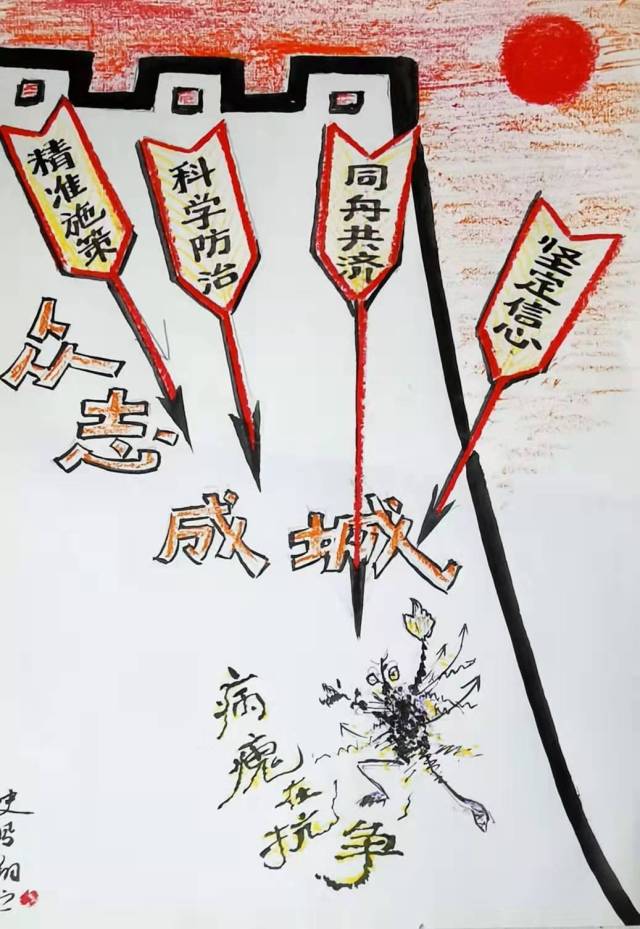 精准施策
科学防治
同舟共济
坚定信心
众志成城
病瘣在抗争